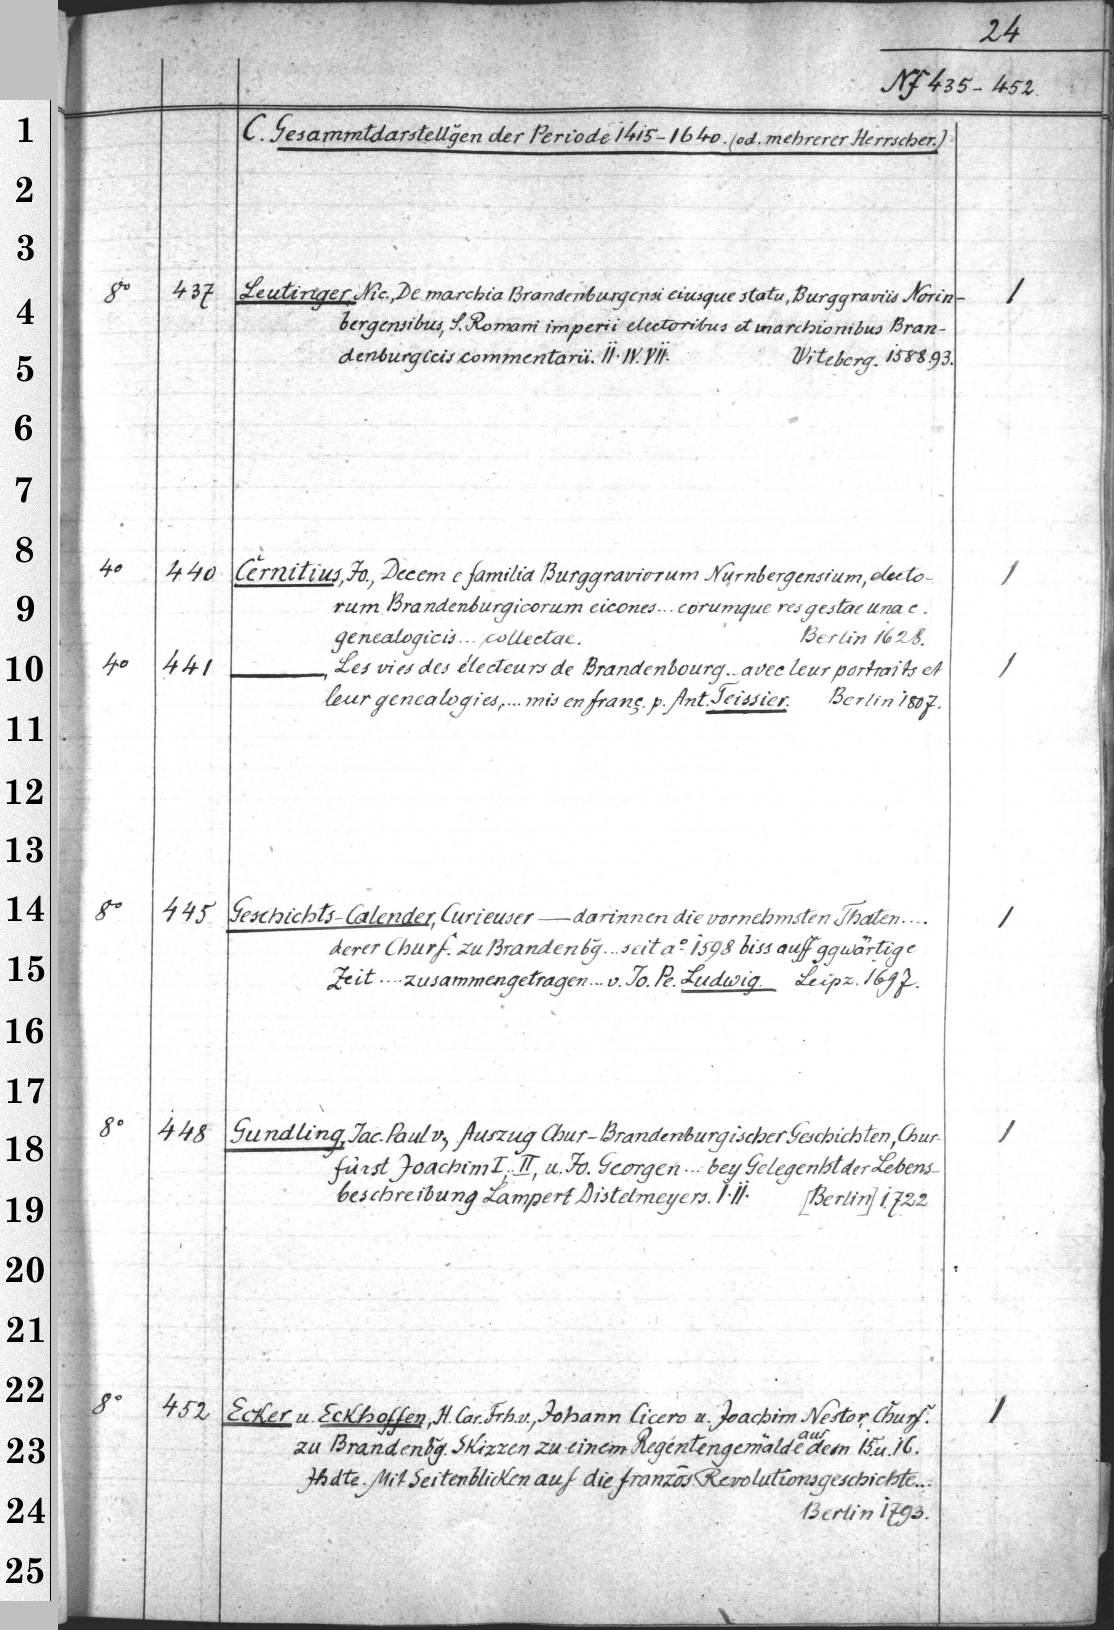 24
Nf 435-452.
C. Gesammtdarstellg̃en der Periode 1415-1640. (od. mehrerer Herrscher.)
8° 437 Leutinger, Nic., De marchia Brandenburgensi eiusque statu, Burggraviis Norin- 1
bergensibus, S. Romani imperii electoribus et marchionibus Bran-
denburgicis commentarii. II. IV. VII. Witeberg. 1588.93.
4° 440 Cernitius, Jo., Decem e familia Burggraviorum Nurnbergensium, electo- 1
rum Brandenburgicorum eicones... eorumque res gestae una c.
genealogicis... collectae. Berlin 1628.
4° 441 ———, Les vies des électeurs de Brandenbourg... avec leur portraits et 1
leur genealogies,... mis en franç. p. Ant. Teissier. Berlin 1807.
8° 445 Geschichts-Calender, Curieuser — darinnen die vornehmsten Thaten.... 1
derer Churf. zu Brandenbg̃... seit a° 1598 biss auff ggwärtige
Zeit.... zusammengetragen... v. Jo. Pe. Ludwig. Leipz. 1697.
8° 448 Gundling, Jac. Paul v., Auszug Chur-Brandenburgischer Geschichten, Chur- 1
fürst Joachim I., II., u. Jo. Georgen... bey Gelegenht der Lebens-
beschreibung Lampert Distelmeyers. I. II. [Berlin] 1722
8° 452 Ecker u. Eckhoffen, H. Car. Frh. v., Johann Cicero u. Joachim Nestor, Churf. 1
zu Brandenbg̃. Skizzen zu einem Regentengemälde aus dem 15. u. 16.
Jhdte. Mit Seitenblicken auf die französ. Revolutionsgeschichte...
Berlin 1793.
1
2
3
4
5
6
7
8
9
10
11
12
13
14
15
16
17
18
19
20
21
22
23
24
25